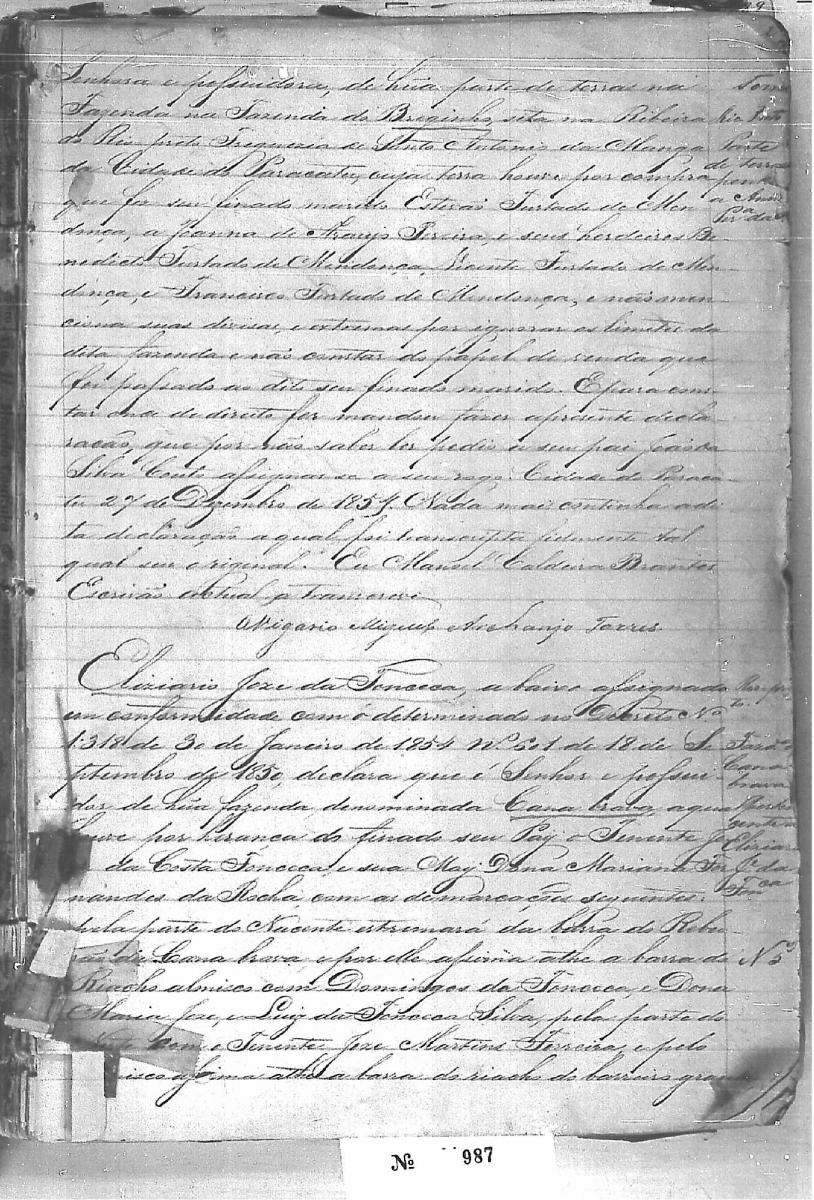 Senhora e possuidora, de hũa parte de terras na
Fazenda na Fazenda do Brejinho, sita na Ribeira
do Rio preto Freguezia de Santo Antonio da Manga
da Cidade do Paracatu, cuja terra houve por compra
que fez seu finado marido Estevaõ Furtado de Men-
donça, a Joanna de Araujo Pereira, e seus herdeiros Be-
nedicto Furtado de Mendonça, Vicente Furtado de Men-
donça, e Francisco Furtado de Mendonça, e naõ men-
ciona suas divisas, e extremas por ignorar os limites da
dita fazenda e naõ constar do papel de venda que
foi passado ao dito seu finado marido. E para cons-
tar onde de direito for mandou fazer a presente decla-
raçaõ, que por naõ saber ler pedio a seu pai
Silva Couto assignar-se a seu rogo. Cidade do Paraca-
tu 27 de Dezembro de 1854. Nada mais continha a di-
ta declaraçaõ a qual foi transcripta fielmente tal
qual seu original. Eu Manoel Caldeira Brantes
Escrivaõ actual a transcrevi
O Vigario Miguel Archanjo Torres
Eliziario Joze da Fonceca, a baixo assignado
em conformidade com o determinado no Decreto Nº
1:318 de 30 de Janeiro de 1854 Nº 601 de 18 de Se
ptembro de 1850, declara que é Senhor e possui-
dor de hũa fazenda denominada Cana brava, a qual
houve por herança do finado seu Pay o Tenente
da Costa Fonceca, e sua May Dona Mariana Fer
nandes da Rocha com as demarcações seguintes:
pela parte do Nacente extremará da barra do Ribei-
raõ da Cana brava, e por elle assima athe a barra do
Riacho com Domingos da Fonceca, e Dona
Maria Joze, e Luiz da Fonceca Silva, pela parte do
com o Tenente Joze Martins Ferreira, e pelo
assima athe a barra do riacho do barreiro grande
Rio Preto
Parte
de terras
Rio pre
to
Cana
brava
Perten
cente a
Eliziario
Je da
Fonca
Nº 5
Nº 987